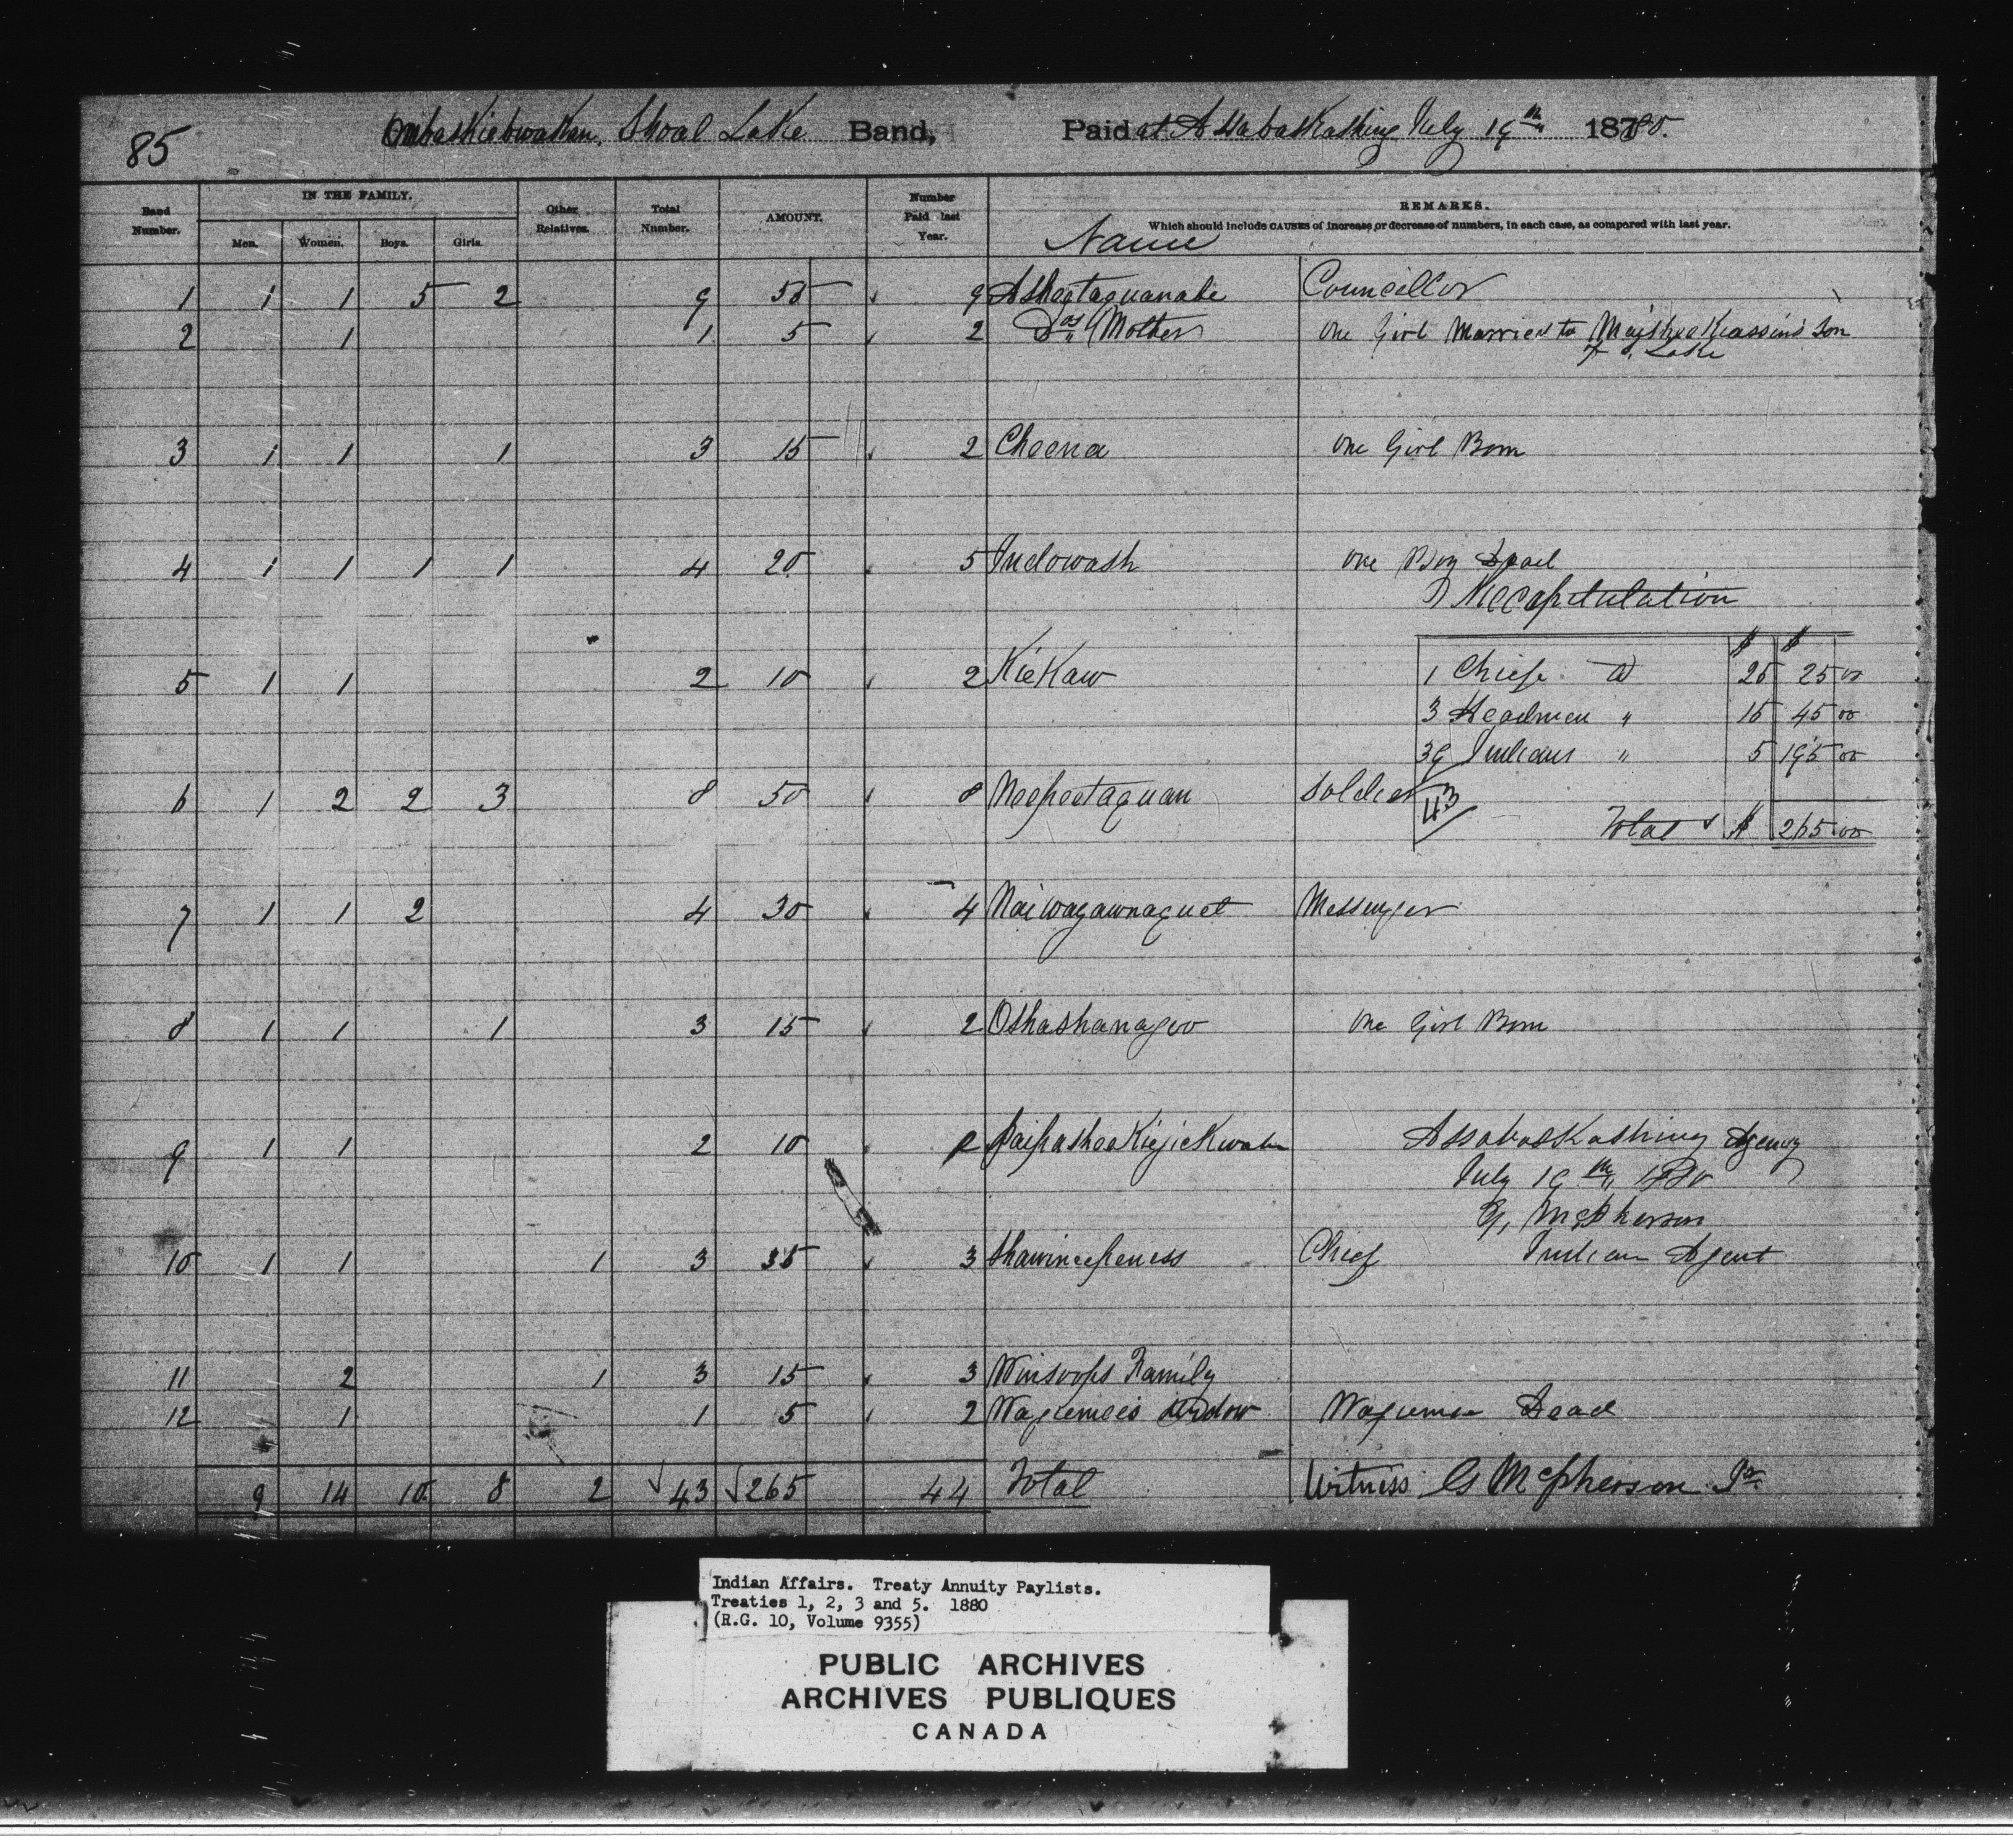 85
Shoal Lake Band, Paid at Assabaskashing July 19th 1880.
Band Number. IN THE FAMILY. Men. Women. Boys. Girls. Other Relatives. Total Number. AMOUNT. Number Paid last Year. Name REMARKS. Which should include CAUSES of increase or decrease of numbers, in each case, as compared with last year.
1 1 1 5 2 9 55 9 Councillor
2 1 1 5 2 Do's Mother one Girl Married to son
Lake
3 1 1 1 3 15 2 Cheena one Girl Born
4 1 1 1 1 4 20 5 Indowash one Boy Dead
Recapitulation
$ $
5 1 1 2 10 2 KieKaw
1 Chief @ 25 25 00
3 Headmen " 15 45 00
39 Indians " 5 195 00
6 1 2 2 3 8 50 8 Neepeetaquan Soldier
43 Total $ 265 00
7 1 1 2 4 30 4 Naiwagawnaquet Messenger
8 1 1 1 3 15 2 Oshashanageo one Girl Born
9 1 1 2 10 2 Assabaskashing Agency
July 19th 1880
G, McPherson
10 1 1 1 3 35 3 Shawineepeness Chief Indian Agent
11 2 1 3 15 3 Winsoops Family
12 1 1 5 2 Wagemeis Widow Dead
9 14 10 8 2 43 265 44 Total Witness G McPherson Jr
Indian Affairs. Treaty Annuity Paylists.
Treaties 1, 2, 3 and 5. 1880
(R.G. 10, Volume 9355)
PUBLIC ARCHIVES
ARCHIVES PUBLIQUES
CANADA